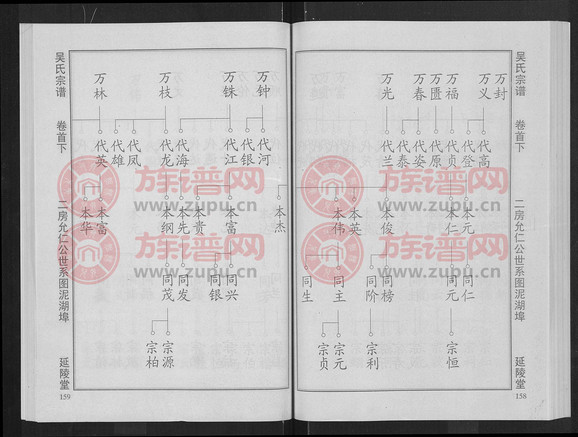 吴氏宗谱
卷首下
二房允仁公世系图泥湖埠
延陵堂
158
万封
万义
万福
万匮
万春
万光
代高
代登
代贞
代原
代姿
代泰
代兰
本元
本仁
本俊
本英
本伟
本杰
同仁
同元
同榜
同阶
同主
同生
宗恒
宗利
宗元
宗贞
吴氏宗谱
卷首下
二房允仁公世系图泥湖埠
延陵堂
159
万钟
万铢
万枝
万林
代河
代银
代江
代海
代龙
代凤
代雄
代英
本富
本贵
本先
本纲
本富
本华
同兴
同银
同发
同茂
宗源
宗柏
族谱网
www.zupu.cn
族谱网
www.zupu.cn
族谱网
www.zupu.cn
族谱网
www.zupu.cn